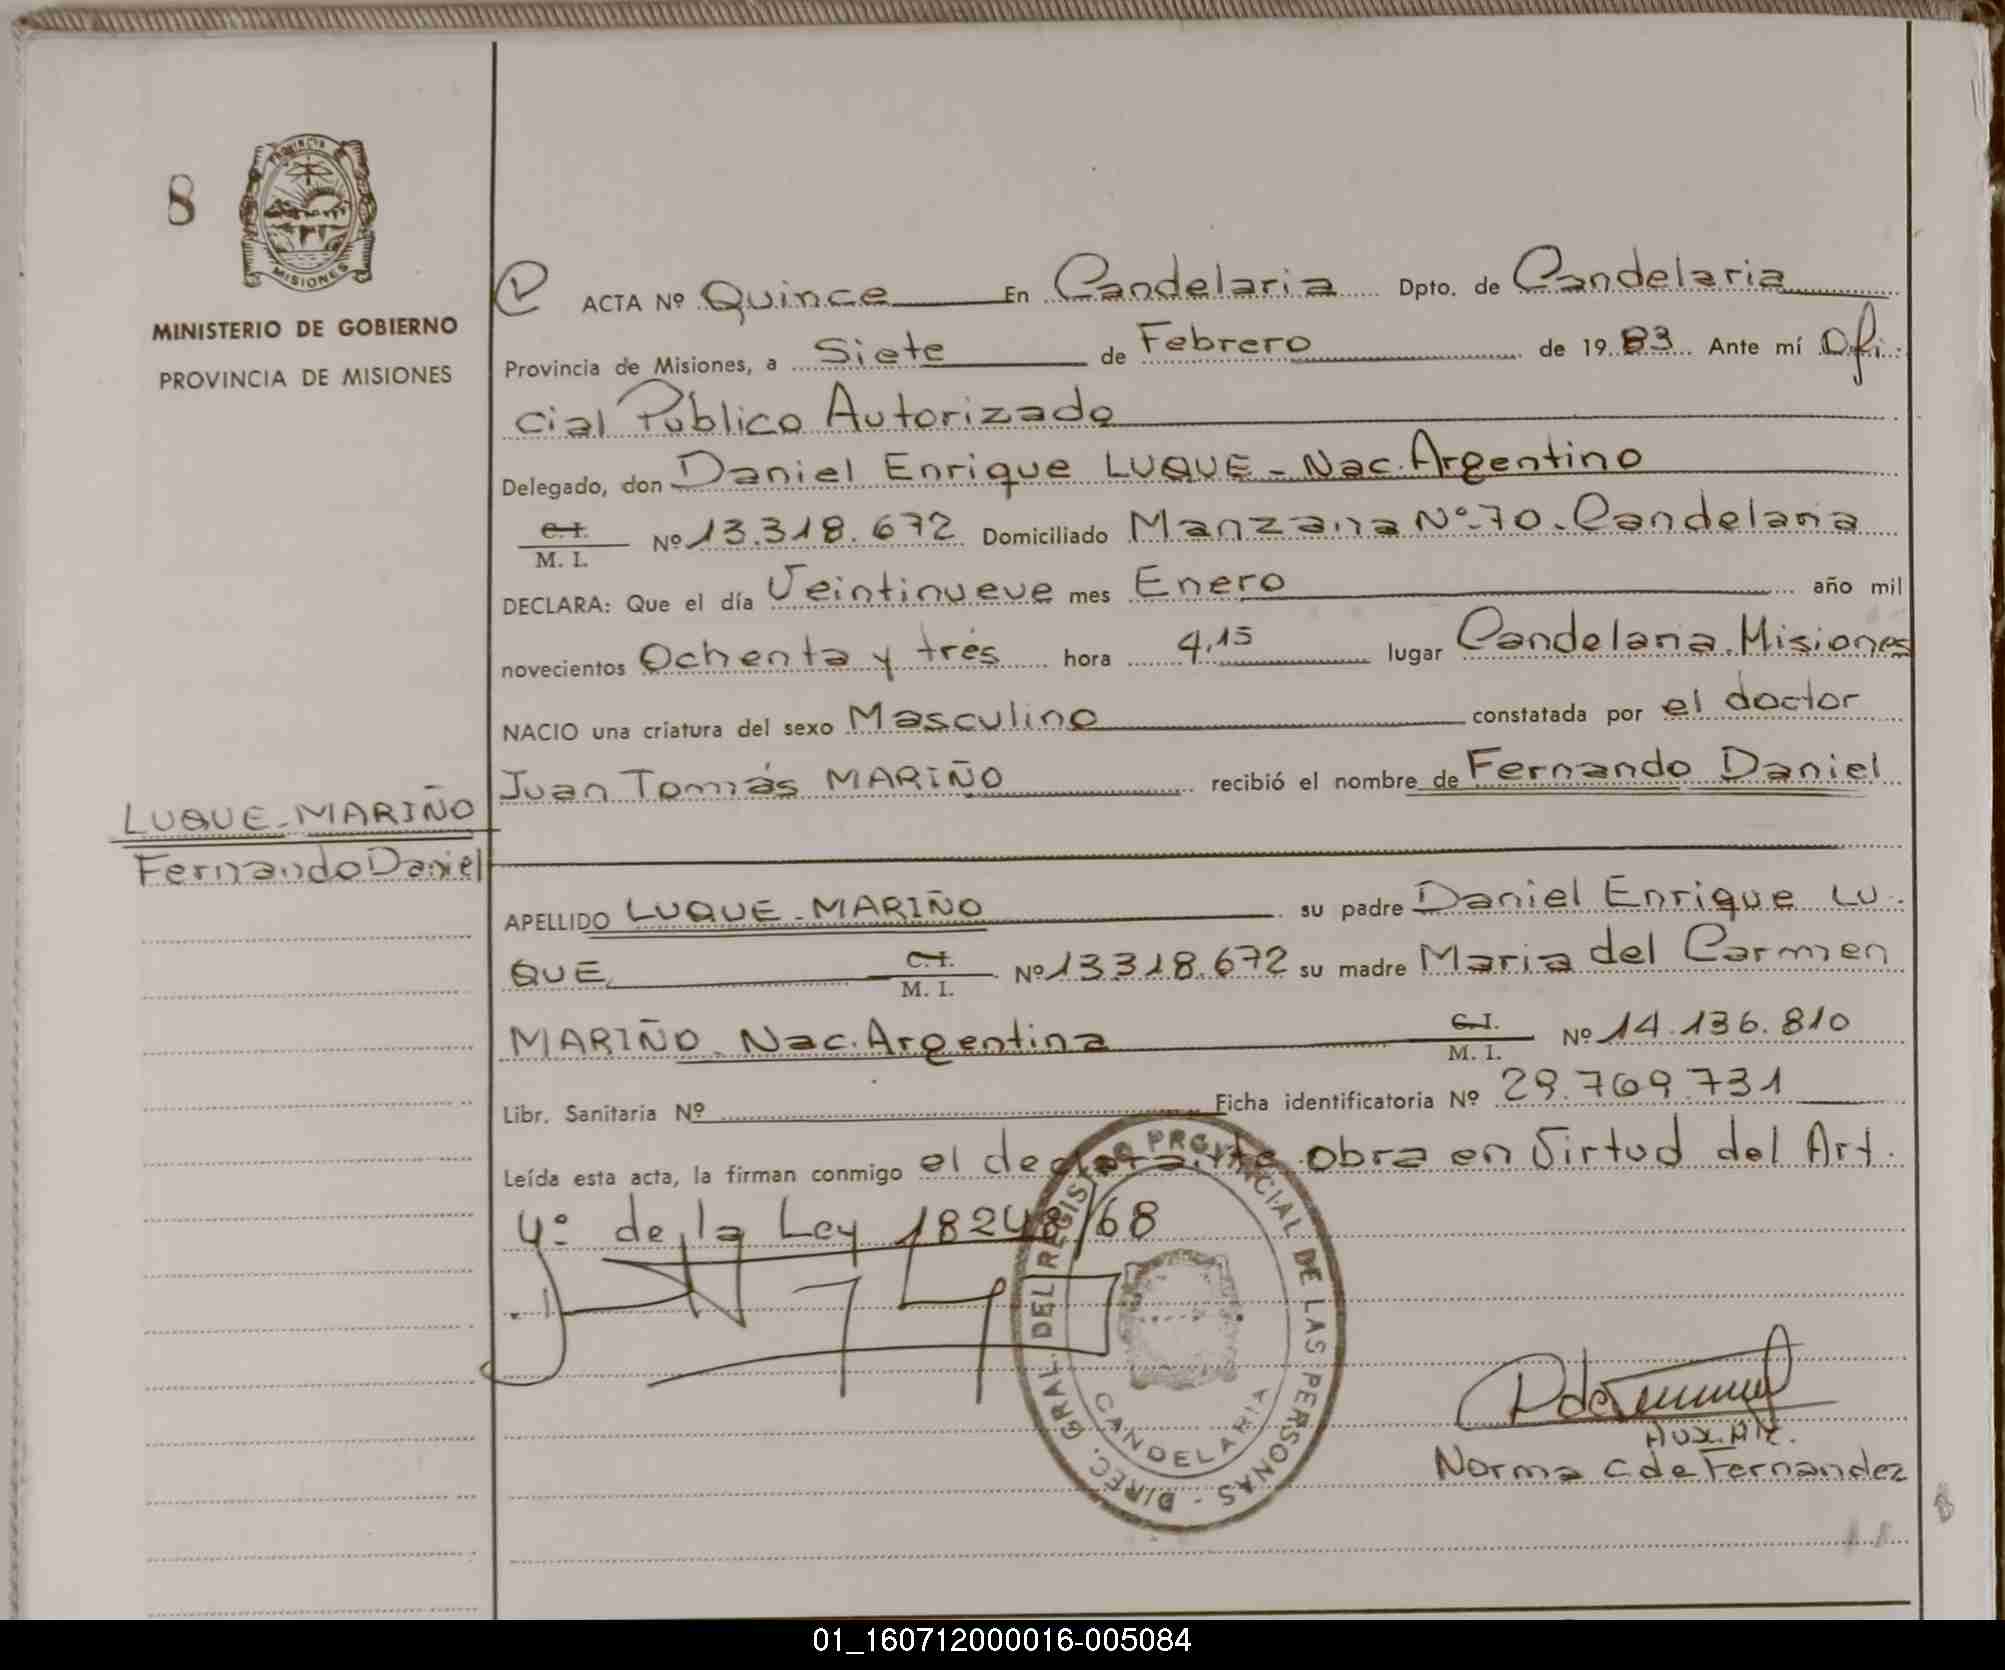 8
PROVINCIA
MISIONES
MINISTERIO DE GOBIERNO
PROVINCIA DE MISIONES
ACTA Nº Quince En Candelaria Dpto. de Candelaria
Provincia de Misiones, a Siete de Febrero de 1983 Ante mí Ofi-
cial Público Autorizado
Delegado, don Daniel Enrique LUQUE - Nac. Argentino
C.I. M. I. Nº 13.318.672 Domiciliado Manzana Nº 70 - Candelaria
DECLARA: Que el día Veintinueve mes Enero año mil
novecientos Ochenta y trés hora 4,15 lugar Candelaria. Misiones
NACIO una criatura del sexo Masculino constatada por el doctor
Juan Tomás MARIÑO recibió el nombre de Fernando Daniel
LUQUE-MARIÑO
Fernando Daniel
APELLIDO LUQUE - MARIÑO su padre Daniel Enrique LU-
QUE C.I. M. I. Nº 13.318.672 su madre Maria del Carmen
MARIÑO - Nac. Argentina C.I. M. I. Nº 14.136.810
Libr. Sanitaria Nº Ficha identificatoria Nº 29.769.731
Leída esta acta, la firman conmigo el declarante obra en Virtud del Art.
4º de la Ley 18248/68
DIREC. GRAL. DEL REGISTRO PROVINCIAL DE LAS PERSONAS -
CANDELARIA
Norma C de Fernandez
01_160712000016-005084